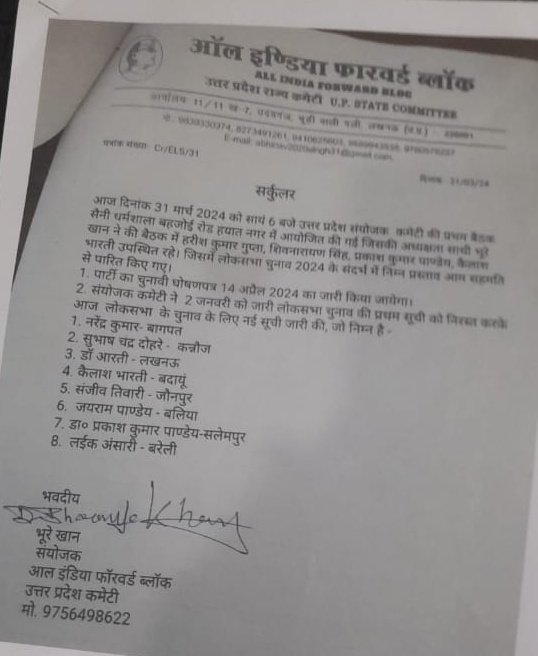 ऑल इण्डिया फारवर्ड ब्लॉक
ALL INDIA FORWARD BLOC
उत्तर प्रदेश राज्य कमेटी U.P. STATE COMMITTEE
कार्यालय 11/11
E-mail:
पत्रांक संख्या: Cr/ELS/31
दिनांक 31/03/24
सर्कुलर
आज दिनांक 31 मार्च 2024 को सायं 6 बजे उत्तर प्रदेश संयोजक कमेटी की प्रथम बैठक
सैनी धर्मशाला बहजोई रोड हयात नगर में आयोजित की गई जिसकी अध्यक्षता साथी भूरे
खान ने की बैठक में हरीश कुमार गुप्ता, शिवनारायण सिंह, प्रकाश कुमार पाण्डेय, कैलाश
भारती उपस्थित रहे। जिसमें लोकसभा चुनाव 2024 के संदर्भ में निम्न प्रस्ताव आम सहमति
से पारित किए गए।
1. पार्टी का चुनावी घोषणपत्र 14 अप्रैल 2024 का जारी किया जायेगा।
2. संयोजक कमेटी ने 2 जनवरी को जारी लोकसभा चुनाव की प्रथम सूची को निरस्त करके
आज लोकसभा के चुनाव के लिए नई सूची जारी की, जो निम्न है -
1. नरेंद्र कुमार- बागपत
2. सुभाष चंद्र दोहरे - कन्नौज
3. डॉ आरती - लखनऊ
4. कैलाश भारती - बदायूं
5. संजीव तिवारी - जौनपुर
6. जयराम पाण्डेय - बलिया
7. डा० प्रकाश कुमार पाण्डेय-सलेमपुर
8. लईक अंसारी - बरेली
भवदीय
भूरे खान
संयोजक
आल इंडिया फॉरवर्ड ब्लॉक
उत्तर प्रदेश कमेटी
मो. 9756498622